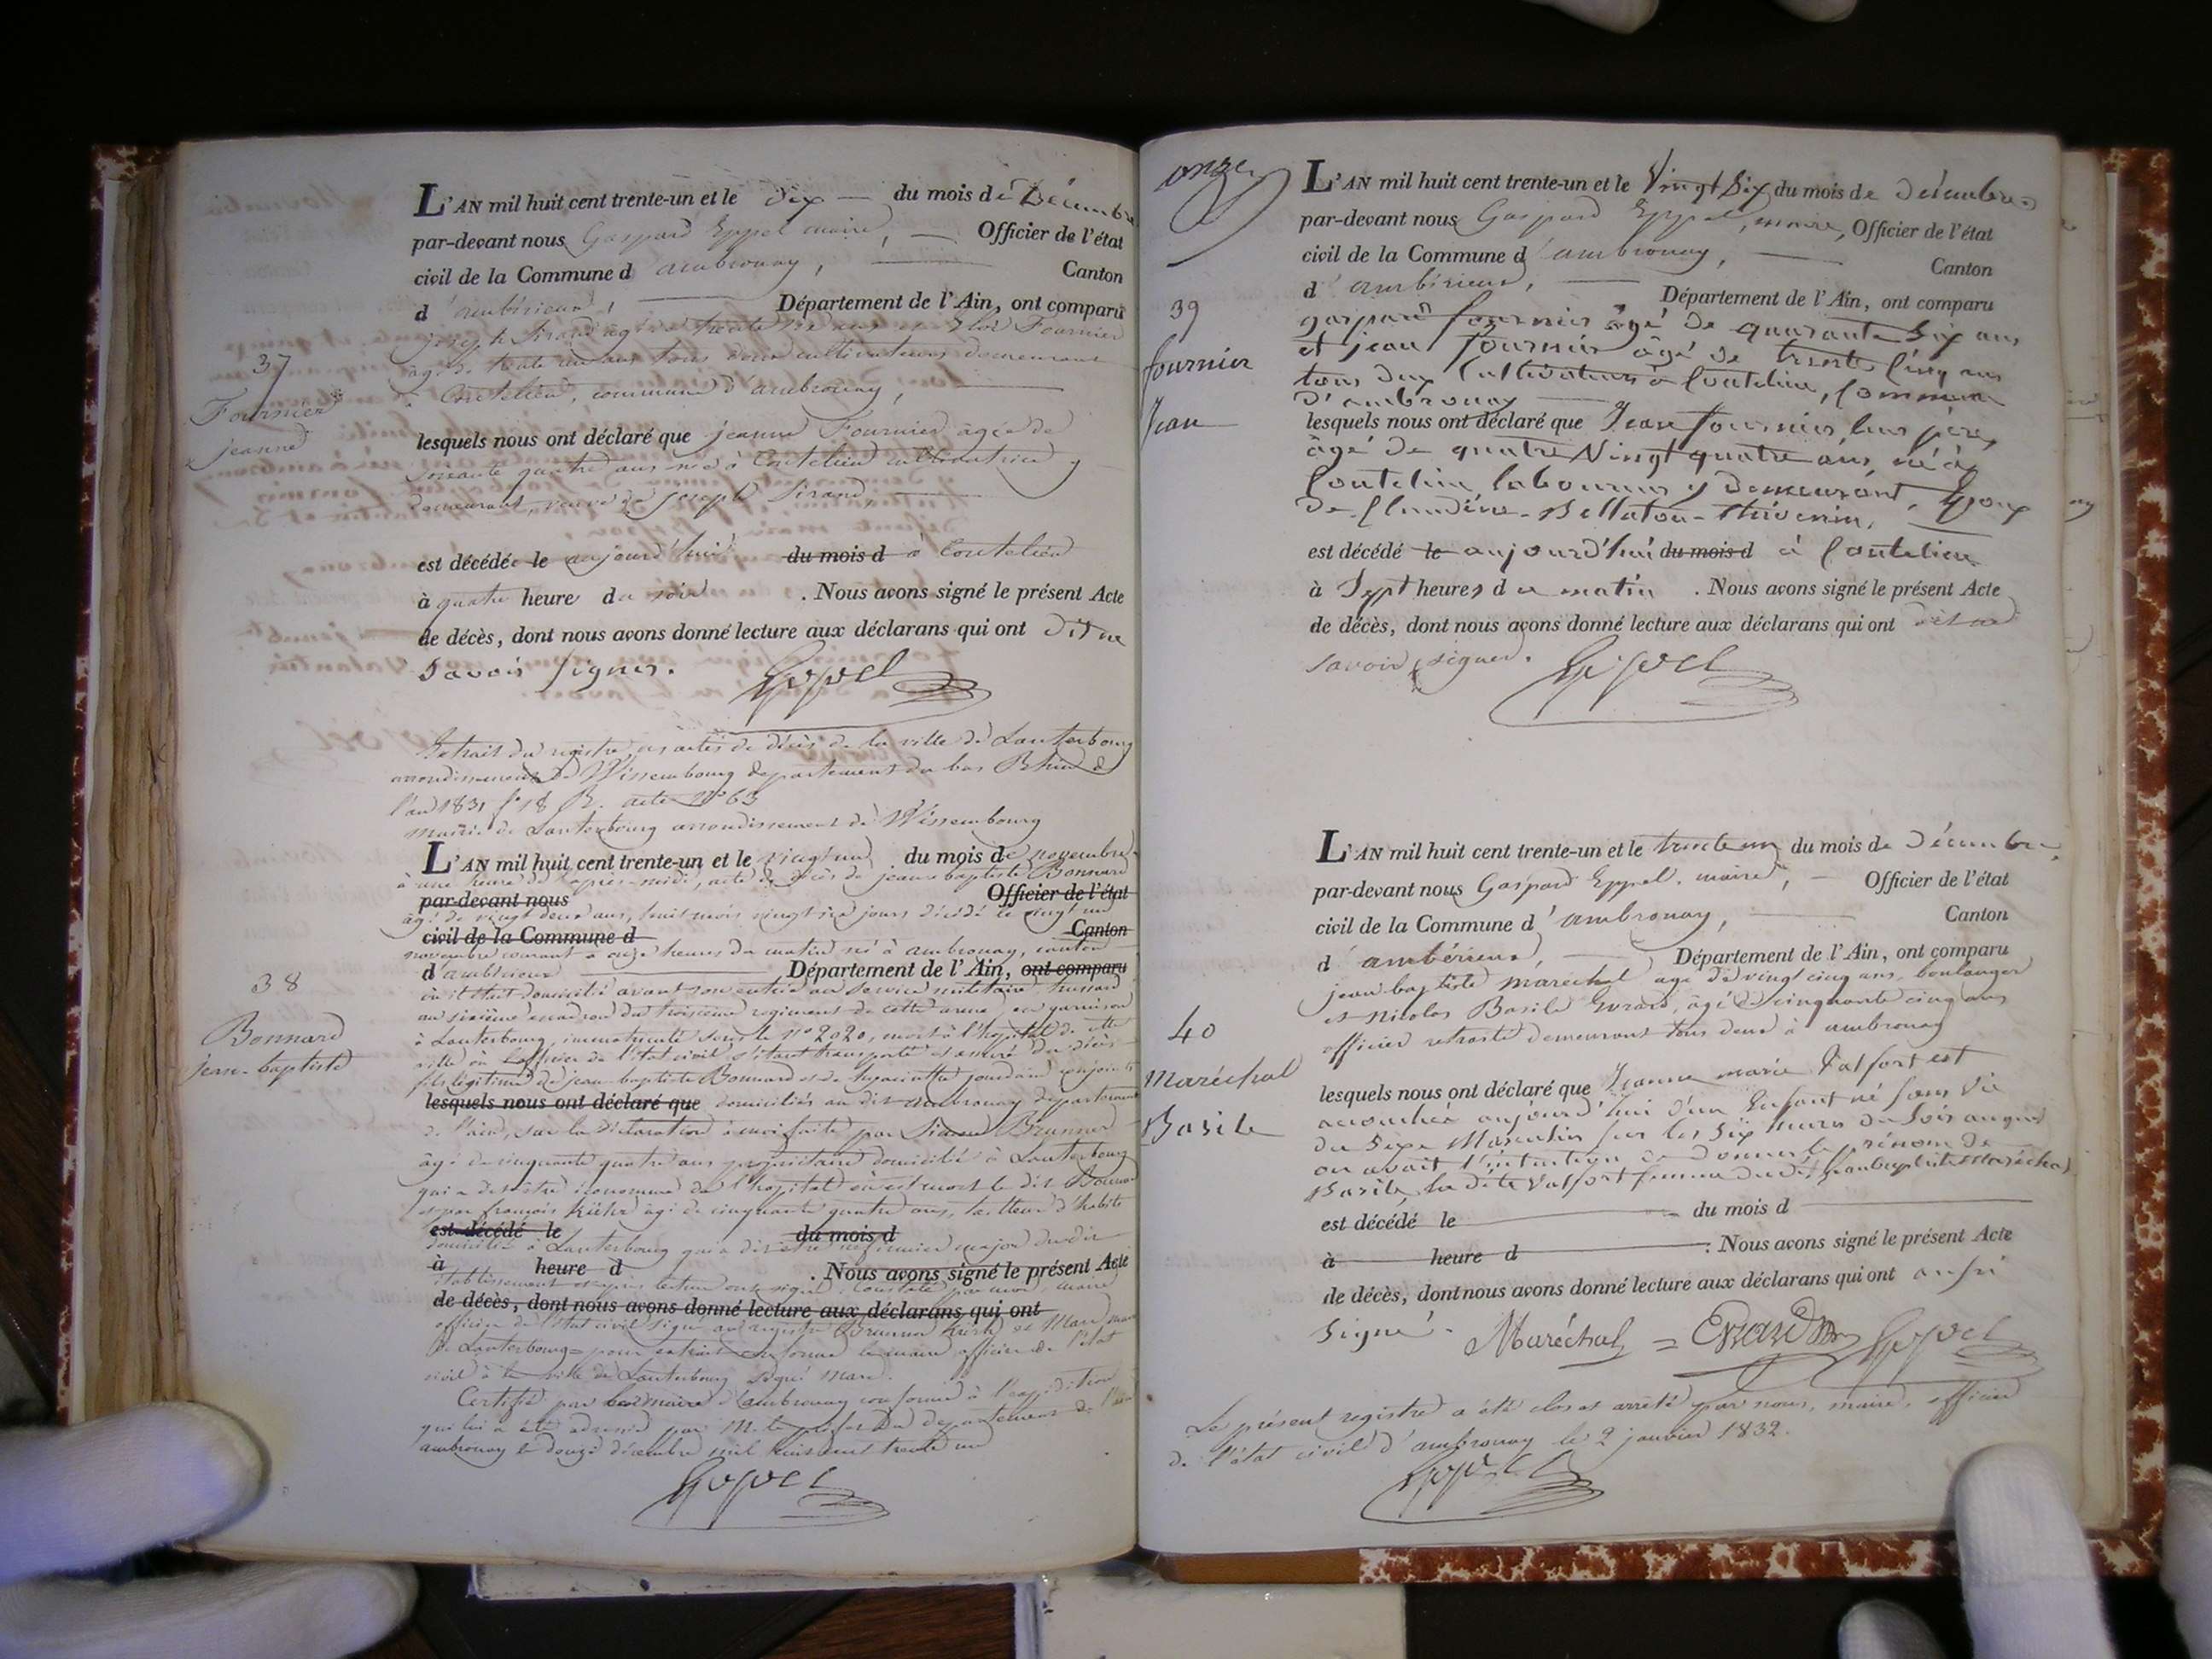 L'AN mil huit cent trente-un et le dix du mois de Décembre
par-devant nous Gaspard Eppel maire, Officier de l'état
civil de la Commune d ambronay, Canton
d'ambérieux, Département de l'Ain, ont comparu
joseph Sirand âgé de trente ans et Fournier
âgé de trente un ans tous deux cultivateurs demeurant
à Coutelieu, commune d'ambronay,
37
Fournier
jeanne
lesquels nous ont déclaré que jeanne Fournier âgée de
soixante quatre ans née à Coutelieu cultivatrice y
demeurant, veuve de joseph Sirand,
est décédée le aujourd'hui du mois d à Coutelieu
à quatre heure du soir . Nous avons signé le présent Acte
de décès, dont nous avons donné lecture aux déclarans qui ont dit ne
savoir signer. Eppel
Extrait du registre des actes de décès de la ville de Lauterbourg
arrondissement de Wissembourg departement du bas Rhin de
l'an 1831 fo 18 R. acte No 63
mairie de Lauterbourg arrondissement de Wissembourg
L'AN mil huit cent trente-un et le vingt un du mois de novembre
à une heure de l'après-midi, acte de décès de jean baptiste Bonnard
par-devant nous Officier de l'état
âgé de vingt deux ans, huit mois vingt six jours décédé le vingt un
civil de la Commune d Canton
novembre courant à onze heures du matin né à ambronay, canton
d'ambérieux Département de l'Ain, ont comparu
où il était domicilié avant son entrée au service militaire hussard
au sixième escadron du troisième regiment de cette arme, en garnison
38
Bonnard
jean-baptiste
à Lauterbourg, immatriculé sous le No 2020, mort à l'hopital de cette
ville où l'officier de l'état civil s'étant transporté s'est assuré du décès
fils légitime de jean-baptiste Bonnard et de hyacinthe jourdain conjoints
lesquels nous ont déclaré que domiciliés au dit ambronay département
de l'ain, sur la déclaration à moi faite par Brunner
âgé de cinquante quatre ans propriétaire domicilié à Lauterbourg
qui a dit être économe de l'hopital où est mort le dit Bonnard
et par françois âgé de cinquante quatre ans, tailleur d'habits
est décédé le du mois d
domicilié à Lauterbourg qui a dit être infirmier major du dit
à heure d . Nous avons signé le présent Acte
établissement et après lecture ont signé. constaté par moi, maire
de décès, dont nous avons donné lecture aux déclarans qui ont
officier de l'état civil signé au registre Brunner et Marc maire
de Lauterbourg = pour extrait conforme le maire officier de l'état
civil à la ville de Lauterbourg signé Marc.
Certifié par le maire d'ambronay conforme à l'expédition
qui lui a été adressée par M. le préfet du departement de l'ain
ambronay le douze décembre mil huit cent trente un
Eppel
onze
L'AN mil huit cent trente-un et le Vingt Six du mois de décembre
par-devant nous Gaspard Eppel, maire, Officier de l'état
civil de la Commune d'ambronay, Canton
d'ambérieux, Département de l'Ain, ont comparu
39
fournier
Jean
gaspard fournier âgé de quarante Six ans
et jean fournier âgé de trente Cinq ans
tous deux Cultivateurs à Coutelieu, Commune
d'ambronay
lesquels nous ont déclaré que Jean fournier, leur père,
âgé de quatre Vingt quatre ans, né à
Coutelieu laboureur y demeurant, Epoux
de Claudine Bellaton-thévenin,
est décédé le aujourd'hui du mois d à Coutelieu
à Sept heures du matin . Nous avons signé le présent Acte
de décès, dont nous avons donné lecture aux déclarans qui ont dit ne
savoir signer. Eppel
L'AN mil huit cent trente-un et le trente un du mois de décembre
par-devant nous Gaspard Eppel, maire, Officier de l'état
civil de la Commune d'ambronay, Canton
d'ambérieux, Département de l'Ain, ont comparu
jean-baptiste maréchal âgé de vingt cinq ans, boulanger
et Nicolas Basile Evrard, âgé de cinquante cinq ans
officier retraité demeurant tous deux à ambronay
40
Maréchal
Basile
lesquels nous ont déclaré que Jeanne marie Valfort est
accouchée aujourd'hui d'un Enfant né sans vie
du Sexe Masculin sur les Six heures du Soir auquel
on avait l'intention de donner le prénom de
Basile, la dite Valfort femme du dit jean baptiste Maréchal
est décédé le du mois d
à heure d . Nous avons signé le présent Acte
de décès, dont nous avons donné lecture aux déclarans qui ont aussi
Signé. Maréchal = Evrard Eppel
Le présent registre a été clos et arrêté par nous, maire, officier
de l'état civil d'ambronay le 2 janvier 1832.
Eppel